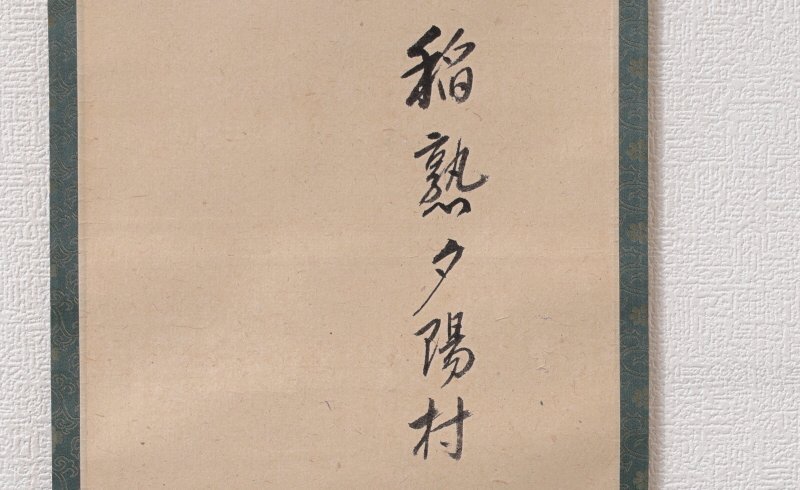 稲熟夕陽村